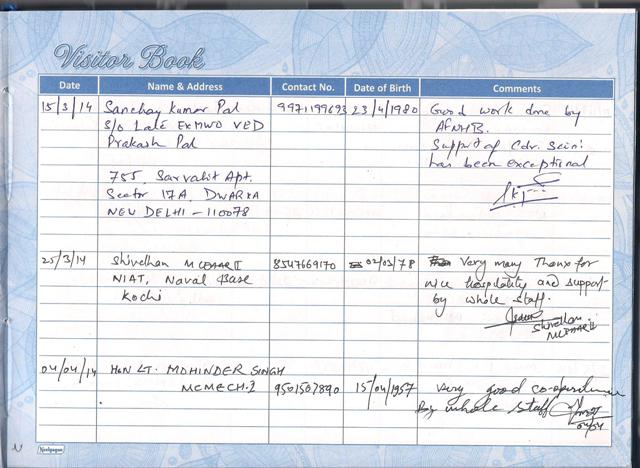 Visitor Book
Date Name & Address Contact No. Date of Birth Comments
15/3/14 Sanchay Kumar Pal 9971199693 23/4/1980 Good work done by
S/o Late ExMWO VED AFNHB.
Prakash Pal Support of Cdr. Saini
has been exceptional
755, Sarvahit Apt.
Sector 17A, DWARKA
NEW DELHI - 110078
25/3/14 Shivdhan MCEAAR II 8547669170 02/03/78 Very many Thanx for
NIAT, Naval Base nice hospitality and support
Kochi by whole staff.
Shivdhan
MCEAAR II
04/04/14 HON LT. MOHINDER SINGH
MCMECH-2 9501507890 15/04/1957 Very good co-operation
By whole staff
04/04
Neelgagan